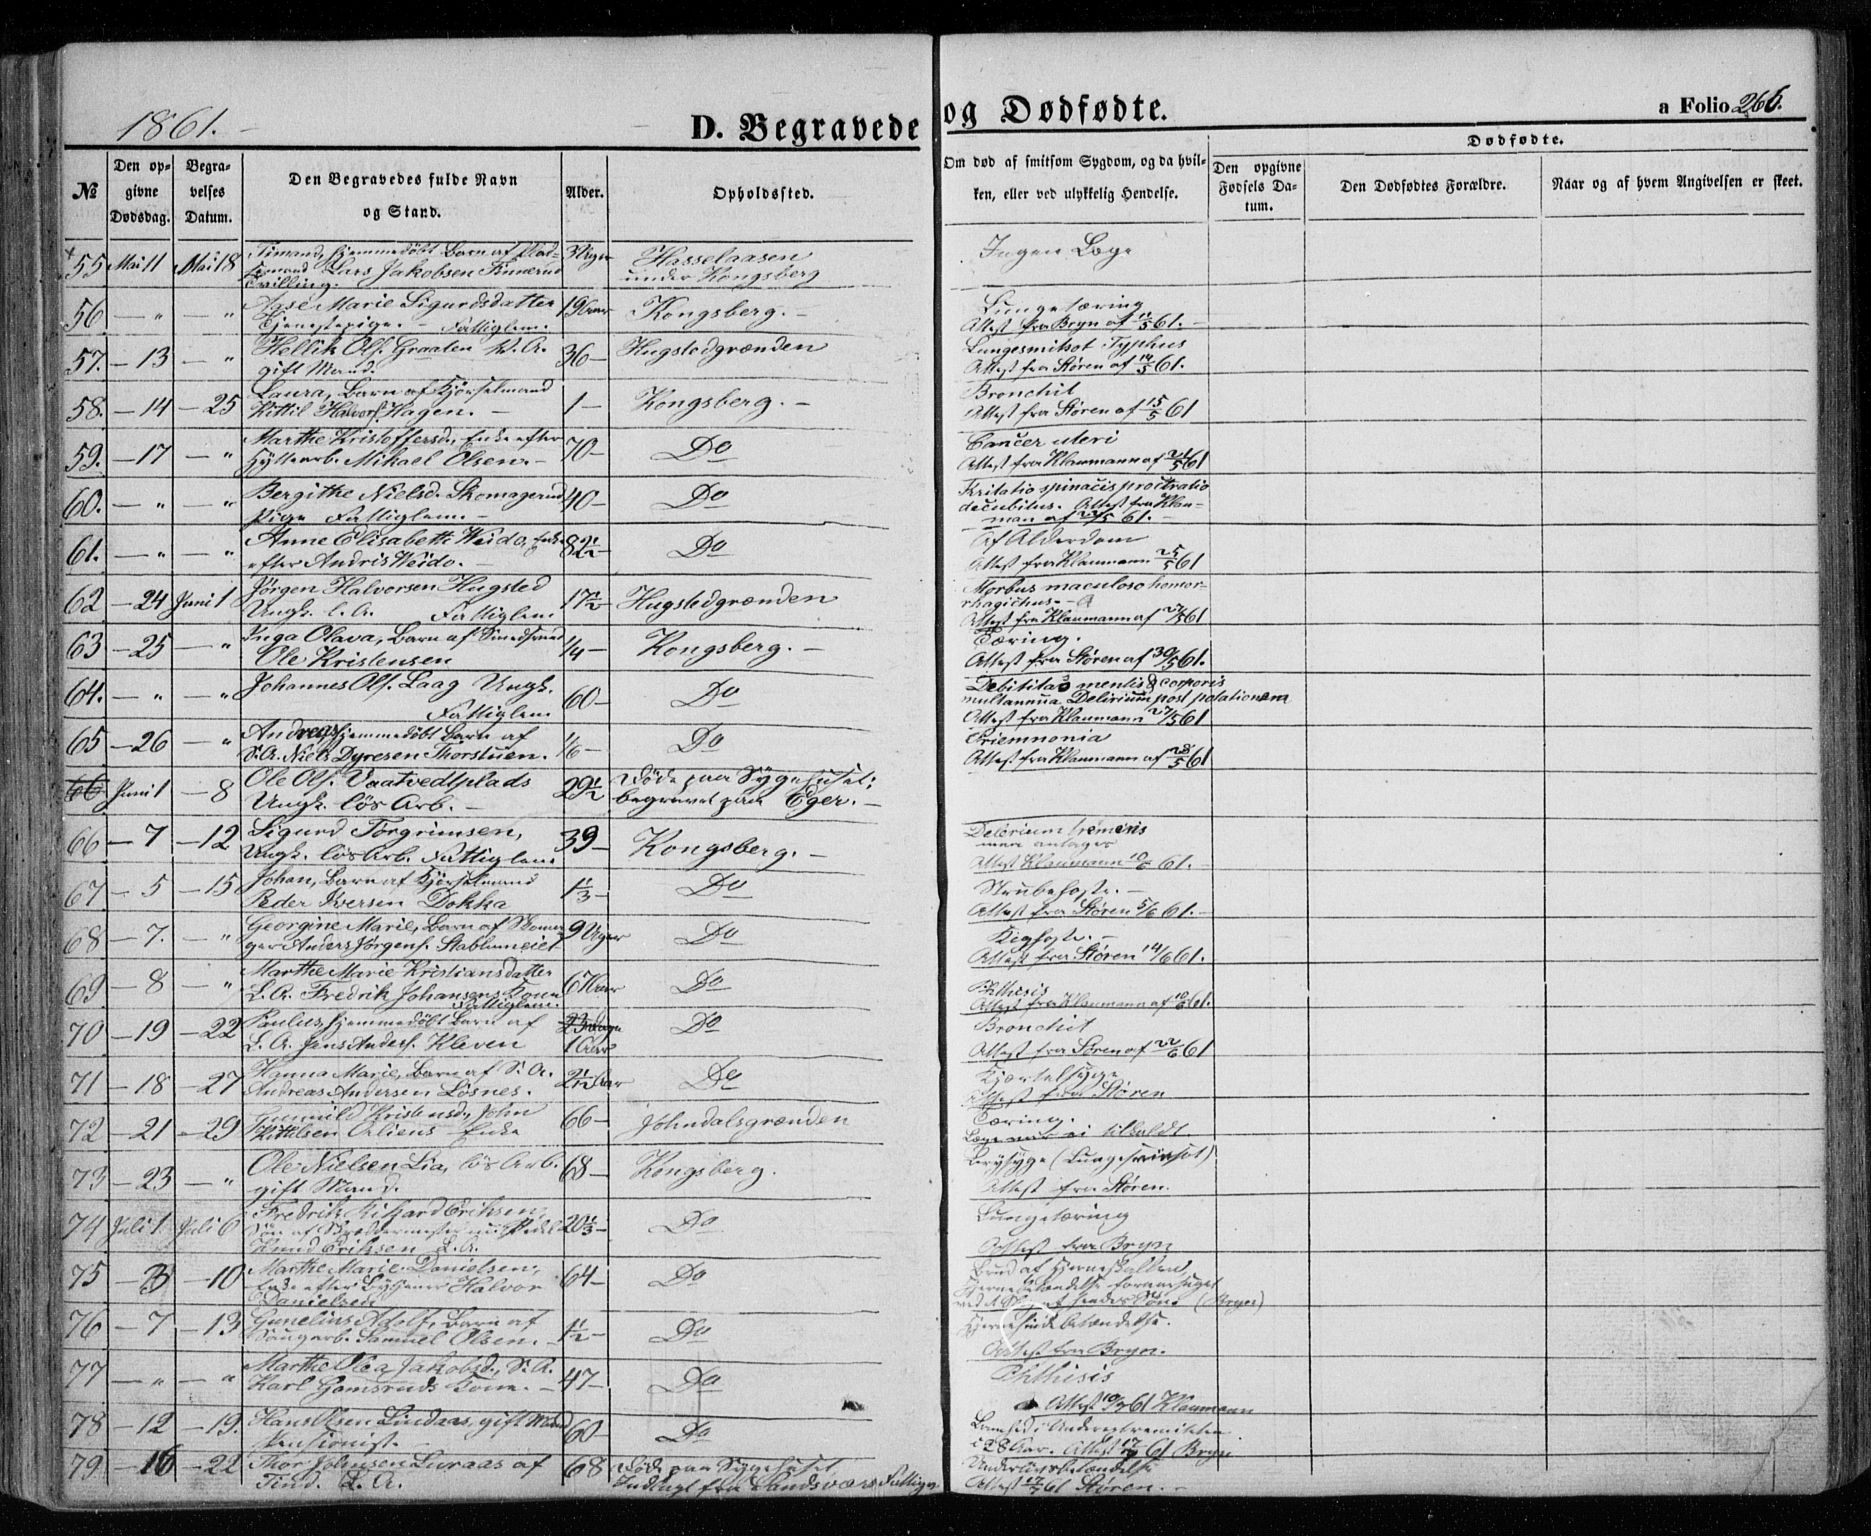 1861.
D. Begravede og Dødfødte.
a Folio 266.
№
Den opgivne Dødsdag.
Begravelses Datum.
Den Begravedes fulde Navn og Stand.
Alder.
Opholdssted.
Om død af smitsom Sygdom, og da hvilken, eller ved ulykkelig Hendelse.
Dødfødte.
Den opgivne Fødsels Datum.
Den Dødfødtes Forældre.
Naar og af hvem Angivelsen er skeet.
55 Mai 11 Mai 18 hjemmedøbt Barn af
Lars Jakobsen
Tvilling.
3 Uger Hasselaasen
under Kongsberg
Ingen Læge
56 — " — " Marie Sigurdsdatter
Tjenestepige. — Fattiglem.
19 Aar Kongsberg. —
Lungetæring
Attest fra Bryn af 11/5 61. —
57. — 13 — " Hellik Ols. Graaten V. A.
gift Mand.
36 — Hugstedgrænden
Typhus
Attest fra Støren af 14/5 61.
58. — 14 — 25 Laura, Barn af Kjørselmand
Kittil Halvors. Hagen. —
1 — Kongsberg. —
Bronchit
Attest fra Støren af 15/5 61
59. — 17 — " Marthe Kristoffersd., Enke efter
Hyttearb. Mikael Olsen. —
70 — Do
Cancer uteri
Attest fra Klaumann af 24/5 61
60. — " — " Bergithe Nielsd. Skomagerud
Pige Fattiglem —
40 — Do
decubitus. Attest fra Klau-
man af 22/5 61. —
61. — " — " Anne Elisabeth Weido, Enke
efter Andris Weido. —
82½ Do
Af Alderdom
Attest fra Klaumann 25/5 61
62 — 24 Juni 1 Jørgen Halvorsen Hugsted
Ungk. L. A. Fattiglem
17½ Hugstedgrænden
Morbus maculoso hemor-
rhagichus. —
Attest fra Klaumann af 27/5 61
63 — 25 — " Inga Olava, Barn af
Ole Kristensen
¼ — Kongsberg. —
Tæring.
Attest fra Støren af 30/5 61.
64. — " — " Johannes Ols. Laag Ungk.
Fattiglem
60 — Do
Debilitas mentis & corporis
Delirium post potationem
Attest fra Klaumann 27/5 61
65 — 26 — " Andreas, hjemmedøbt Barn af
S. A. Niels Dyresen Thorstuen.
1/6 — Do
Attest fra Klaumann af 28/5 61
66 Juni 1 — 8 Ole Ols. Vaatvedtplads
Ungk. løs Arb. —
29½ Døde paa Sygehuset;
begravet paa Eger. —
66 — 7 — 12 Sigurd Torgrimsen,
Ungk. løs Arb. Fattiglem.
39 — Kongsberg. —
Delerium tremens
Attest Klaumann 10/6 61. —
67 — 5 — 15 Johan, Barn af Kjørselmand
Peder Iversen Dokka
1⅓ — Do
Strubehoste. —
Attest fra Støren 5/6 61. —
68 — 7. — " Georgine Marie, Barn af Skoma-
ger Anders Jørgens. Stablumeiet
9 Uger Do
Kighoste. —
Attest fra Støren 14/6 61.
69 — 8 — " Marthe Marie Kristiansdatter
L. A. Fredrik Johansens Kone
Fattiglem.
67 Aar Do
Phthisis
Attest fra Klaumann af 10/6 61.
70 — 19 — 22 Paulus, hjemmedøbt Barn af
L. A. Jens Anders. Kleven
1 Aar Do
Bronchit
Attest fra Søren af 22/6 61
71 — 18 — 27 Hanna Marie, Barn af S. A.
Andreas Andersen Løsnes.
Aar Do
Kjertelsyge
Attest fra Støren
72 — 21 — 29 Gunnild Kristensd, John
Kittilsen Enke
66 — Johndalsgrænden
Tæring.
Læge var ei tilkaldt
73 — 23 — " Ole Nielsen Lia, løs Arb.
gift Mand.
68 — Kongsberg.
Attest fra Støren.
74 Juli 1 Juli 6 Fredrik Rikard Eriksen,
Søn af
Knud Eriksen L. A.
20⅓ — Do
Lungetæring
Attest fra Bryn
75 — 3 — 10 Marthe Marie Danielsen,
Enke efter Halvor
Danielsen
64 — Do
Brud af Hjerneskallen
(Bryn)
76 — 7 — 13 Gunelius Adolf, Barn af
Samuel Olsen. —
1½ — Do
Hjernehindebetændelse.
Attest fra Bryn.
77 — " — " Marthe Olea Jakobsd., S. A.
Karl Gamsruds Kone. —
47 — Do
Phthisis
Attest 10/7 61 Klaumann
78 — 12 — 19. Hans Olsen Lindaas, gift Mand
Pensionist. —
60 — Do
i 28 Aar. Attest 17/7 61 Bryn
79 — 16 — 22 Thor Johnsen Luraas af
Tind. L. A.
68 Døde paa Sygehuset
Indlagt fra Sandsværs Fattigv.
Underlivsbetændelse
Attest 17/7 61 Støren. —